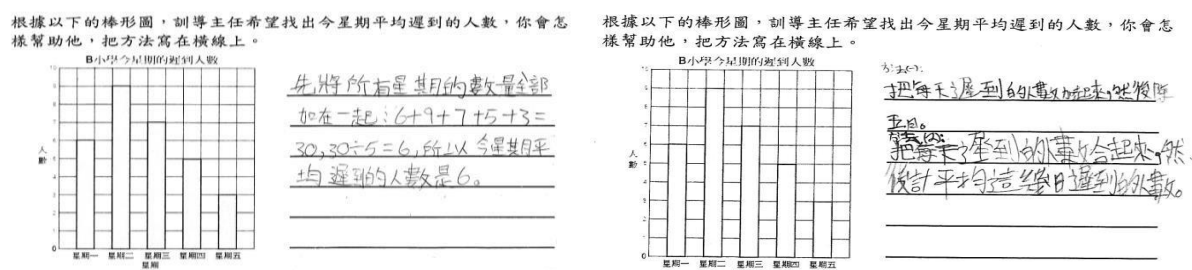 根據以下的棒形圖，訓導主任希望找出今星期平均遲到的人數，你會怎
樣幫助他，把方法寫在橫線上。
B小學今星期的遲到人數
10
9
8
7
6
5
4
3
2
1
0
人數
星期一 星期二 星期三 星期四 星期五
星期
先將所有星期的數量全部
加在一起：6+9+7+5+3=
30，30÷5=6，所以今星期平
均遲到的人數是6。
根據以下的棒形圖，訓導主任希望找出今星期平均遲到的人數，你會怎
樣幫助他，把方法寫在橫線上。
B小學今星期的遲到人數
人數
0
星期一 星期二 星期三 星期四 星期五
星期
方法(一)：
把每天遲到的人數加起來，然後除
五日。
方法(二)：
把每天遲到的人數合起來，然
後計平均這幾日遲到的人數。